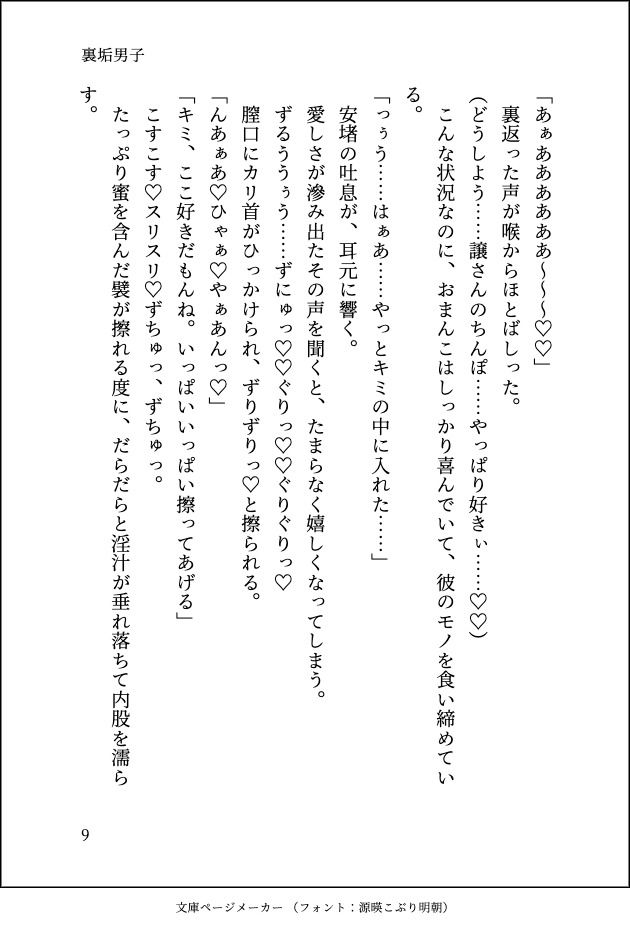 裏垢男子
「あぁああああああ～～～♡♡」
裏返った声が喉からほとばしった。
（どうしよう……譲さんのちんぽ……やっぱり好きぃ……♡♡）
こんな状況なのに、おまんこはしっかり喜んでいて、彼のモノを食い締めてい
る。
「っぅう……はぁあ……やっとキミの中に入れた……」
安堵の吐息が、耳元に響く。
愛しさが滲み出たその声を聞くと、たまらなく嬉しくなってしまう。
ずるううぅう……ずにゅっ♡♡ぐりっ♡♡ぐりぐりっ♡
膣口にカリ首がひっかけられ、ずりずりっ♡と擦られる。
「んあぁあ♡ひゃぁ♡やぁあんっ♡」
「キミ、ここ好きだもんね。いっぱいいっぱい擦ってあげる」
こすこす♡スリスリ♡ずちゅっ、ずちゅっ。
たっぷり蜜を含んだ襞が擦れる度に、だらだらと淫汁が垂れ落ちて内股を濡ら
す。
9
文庫ページメーカー（フォント：源暎こぶり明朝）